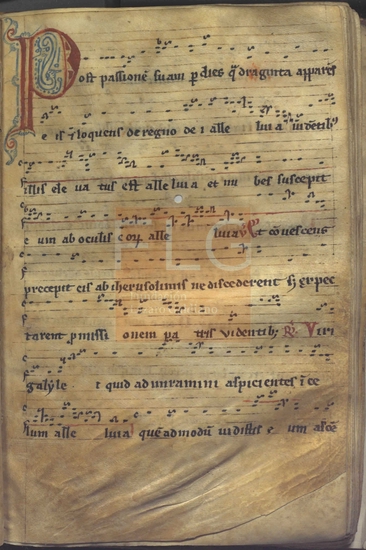 Post passionē suam p dies q̄draginta apparēs
e is ⁊ loquens de regno de i alle luia uidētibꝰ
illis ele ua tus est alle luia et nu bes suscepit
e um ab oculis eoꝝ alle luia ꝟ Et cōuescens
precepit eis ab iherusolimis ne discederent s; expec
tarent pmissi onem pa tris Videntib; R̷. Viri
galyle i quid admiramini aspicientes ī ce
lum alle luia quēadmodū uidistis e um ascē